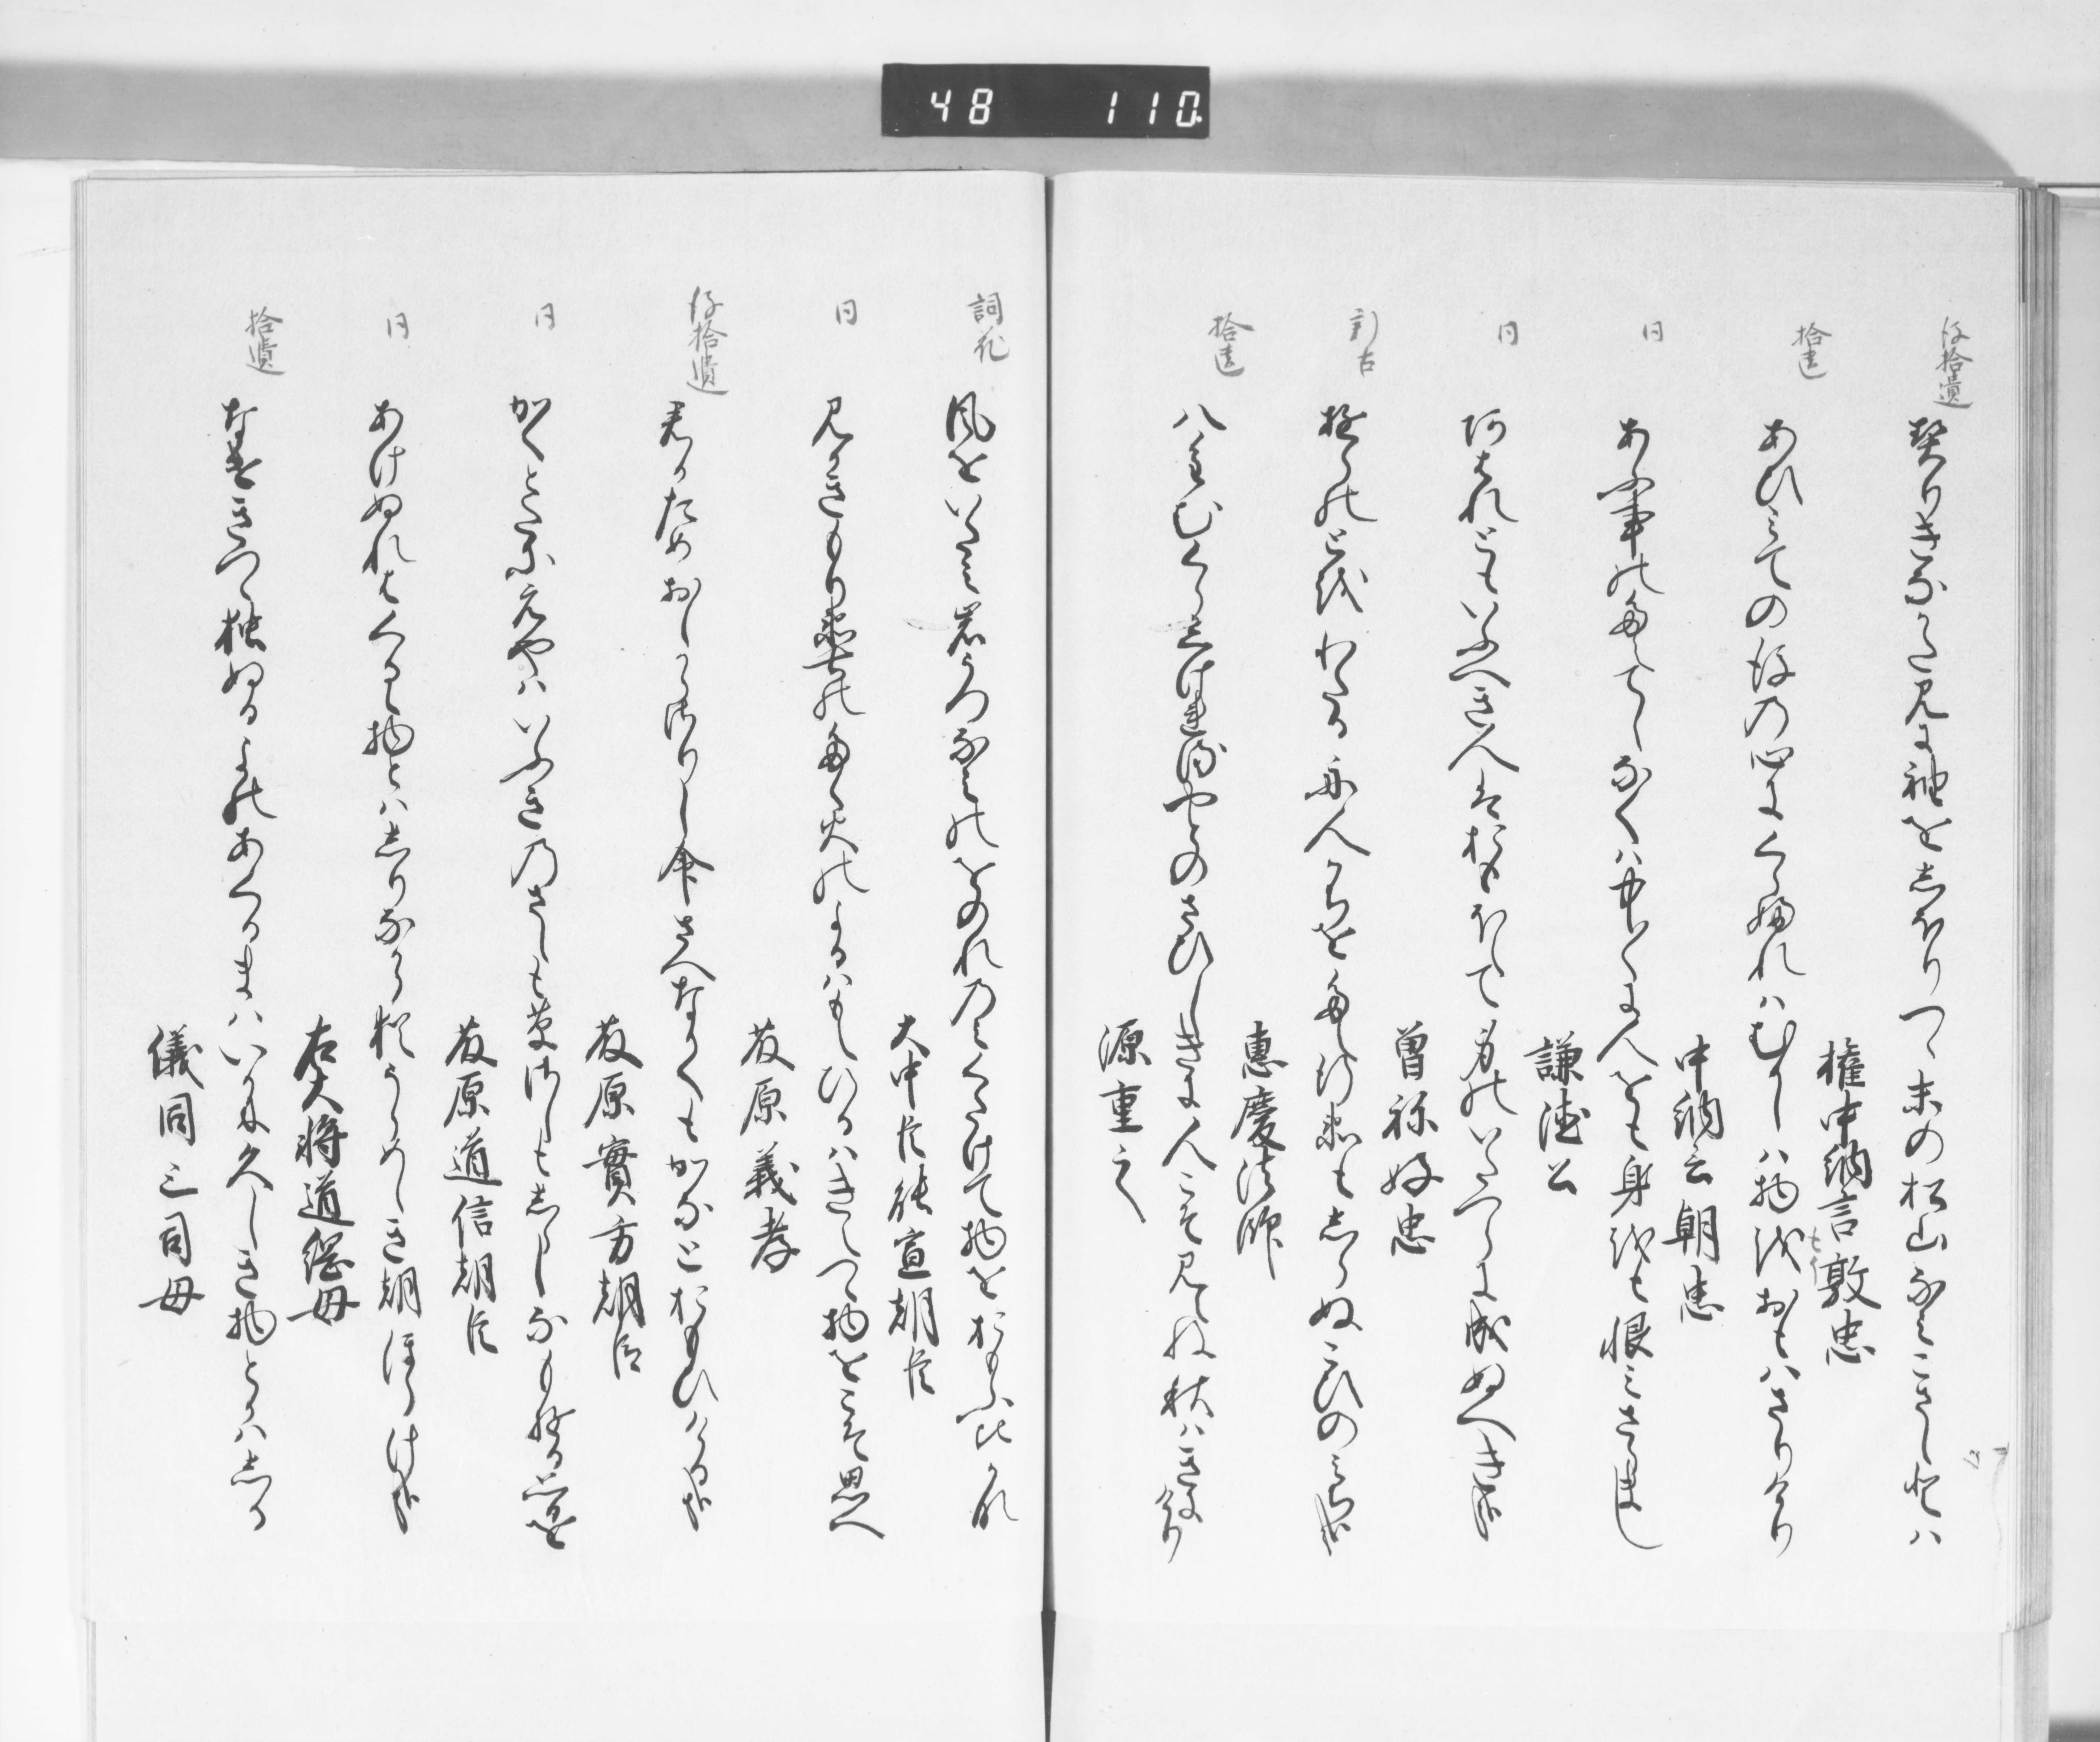 48 110
後拾遺
契りきなかたみに袖をしほりつゝ末の松山なみこさしとは
権中納言敦忠
拾遺
あひみての後の心にくらふれはむかしは物をおもはさりけり
中納言朝忠
同
あふ事のたえてしなくは中〱に人をも身をも恨みさらまし
謙徳公
同
あはれともいふへき人はおもほえて身のいたつらに成ぬへきかな
曽祢好忠
新古
ゆらのとをわたる舟人かちをたえ行衛もしらぬこひのみちかな
恵慶法師
拾遺
八重むくらしけれる宿のさひしきに人こそ見えね秋はきにけり
源重之
詞花
風をいたみ岩うつなみのをのれのみくたけて物をおもふ比かな
大中臣能宣朝臣
同
見かきもり衛士のたく火のよるはもえひるはきえつゝ物をこそ思へ
藤原義孝
後拾遺
君かためおしからさりし命さへなかくもかなとおもひけるかな
藤原實方朝臣
同
かくとたにえやはいふきのさしも草さしもしらしなもゆる思を
藤原道信朝臣
同
あけぬれはくるゝ物とはしりなから猶うらめしき朝ほらけかな
右大将道綱母
拾遺
なけきつゝ独ぬるよのあくるまはいかに久しき物とかはしる
儀同三司母